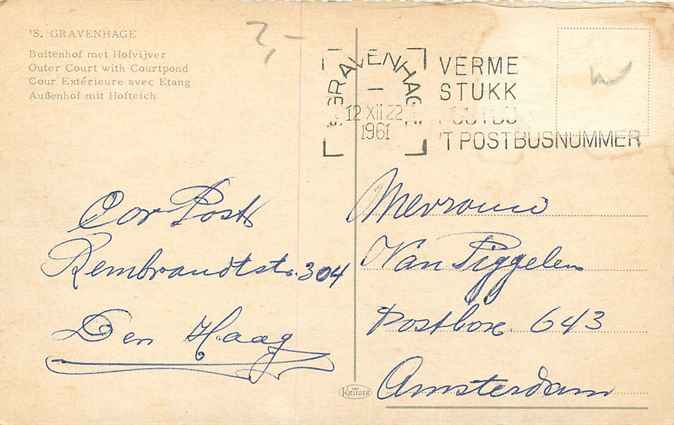 'S. GRAVENHAGE
Buitenhof met Hofvijver
Outer Court with Courtpond
Cour Extérieure avec Etang
Außenhof mit Hofteich
3,-
'S GRAVENHAGE
1
12 XII 22
1961
VERME
STUKK
'T POSTBUSNUMMER
Cor Post
Rembrandtstr. 304
Den Haag
Mevrouw
Van Piggelen
Postbox 643
Amsterdam